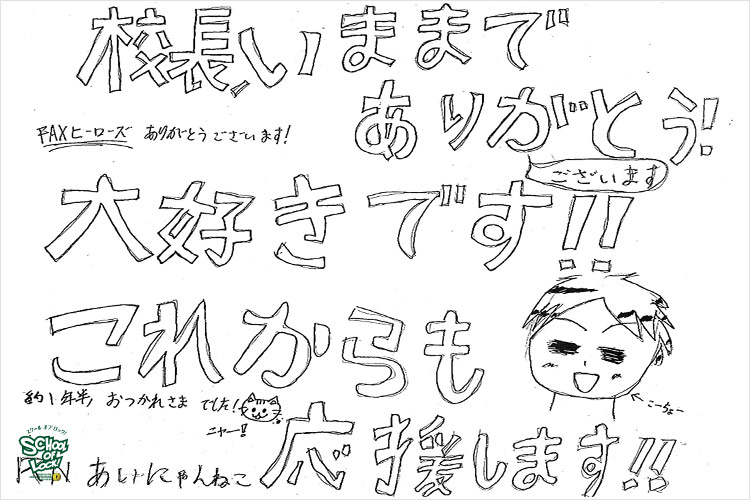 校長いままで
ありがとう!
ございます
FAXヒーローズ ありがとうございます!
大好きです!!
これからも
←こーちょー
約1年半 おつかれさま でした!
ニャー!
応援します!!
スクールオブロック!
SCHOOL OF LOCK!
あいにゃんねこ